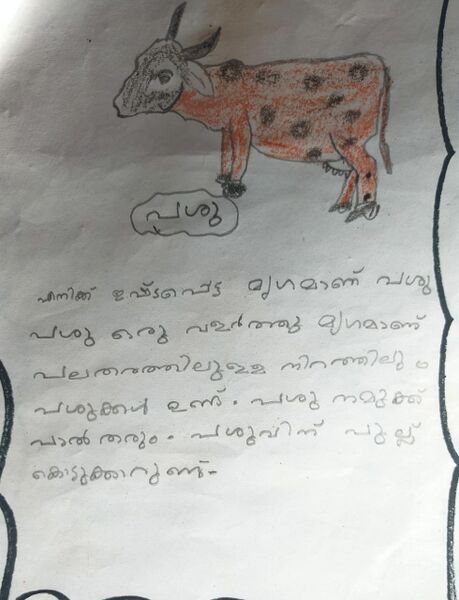 പശു
എനിക്ക് ഇഷ്ടപ്പെട്ട മൃഗമാണ് പശു
പശു ഒരു വളർത്തു മൃഗമാണ്
പലതരത്തിലുള്ള നിറത്തിലും
പശുക്കൾ ഉണ്ട്. പശു നമുക്ക്
പാൽ തരും. പശുവിന് പുല്ല്
കൊടുക്കാറുണ്ട്.